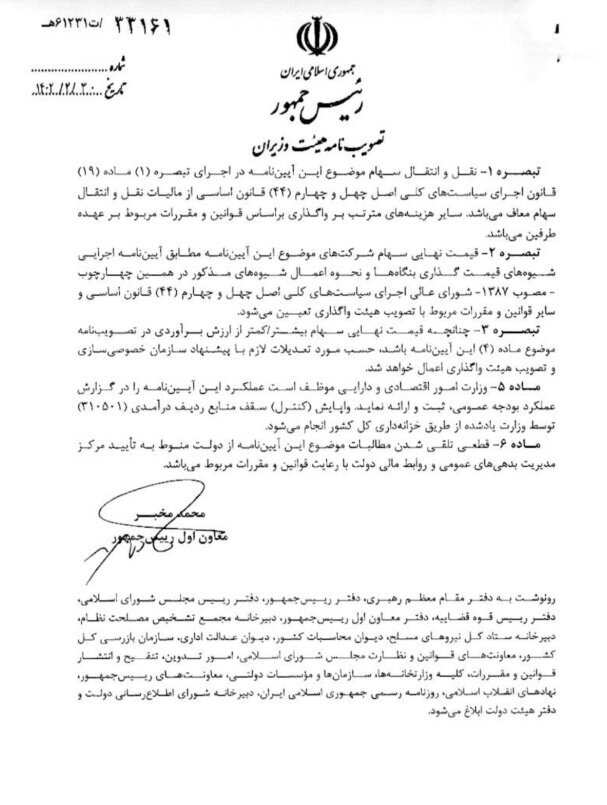 ۳۳۱۶۱ /ت۶۱۲۳۱هـ
شماره
تاریخ ۱۴۰۲/۲/۳۰
جمهوری اسلامی ایران
رئیس جمهور
تصویب نامه هیئت وزیران
تبصره ۱- نقل و انتقال سهام موضوع این آیین‌نامه در اجرای تبصره (۱) ماده (۱۹)
قانون اجرای سیاست‌های کلی اصل چهل و چهارم (۴۴) قانون اساسی از مالیات نقل و انتقال
سهام معاف می‌باشد. سایر هزینه‌های مترتب بر واگذاری براساس قوانین و مقررات مربوط بر عهده
طرفین می‌باشد.
تبصره ۲- قیمت نهایی سهام شرکت‌های موضوع این آیین‌نامه مطابق آیین‌نامه اجرایی
شیوه‌های قیمت گذاری بنگاه‌ها و نحوه اعمال شیوه‌های مذکور در همین چهارچوب
- مصوب ۱۳۸۷- شورای عالی اجرای سیاست‌های کلی اصل چهل و چهارم (۴۴) قانون اساسی و
سایر قوانین و مقررات مربوط با تصویب هیئت واگذاری تعیین می‌شود.
تبصره ۳- چنانچه قیمت نهایی سهام بیشتر/کمتر از ارزش برآوردی در تصویب‌نامه
موضوع ماده (۴) این آیین‌نامه باشد، حسب مورد تعدیلات لازم با پیشنهاد سازمان خصوصی‌سازی
و تصویب هیئت واگذاری اعمال خواهد شد.
ماده ۵- وزارت امور اقتصادی و دارایی موظف است عملکرد این آیین‌نامه را در گزارش
عملکرد بودجه عمومی، ثبت و ارائه نماید. واپایش (کنترل) سقف منابع ردیف درآمدی (۳۱۰۵۰۱)
توسط وزارت یادشده از طریق خزانه‌داری کل کشور انجام می‌شود.
ماده ۶- قطعی تلقی شدن مطالبات موضوع این آیین‌نامه از دولت منوط به تأیید مرکز
مدیریت بدهی‌های عمومی و روابط مالی دولت با رعایت قوانین و مقررات مربوط می‌باشد.
محمد مخبر
معاون اول رییس‌جمهور
رونوشت به دفتر مقام معظم رهبری، دفتر رییس‌جمهور، دفتر رییس مجلس شورای اسلامی،
دفتر رییس قوه قضاییه، دفتر معاون اول رییس‌جمهور، دبیرخانه مجمع تشخیص مصلحت نظام،
دبیرخانه ستاد کل نیروهای مسلح، دیوان محاسبات کشور، دیوان عدالت اداری، سازمان بازرسی کل
کشور، معاونت‌های قوانین و نظارت مجلس شورای اسلامی، امور تدوین، تنقیح و انتشار
قوانین و مقررات، کلیه وزارتخانه‌ها، سازمان‌ها و مؤسسات دولتی، معاونت‌های رییس‌جمهور،
نهادهای انقلاب اسلامی، روزنامه رسمی جمهوری اسلامی ایران، دبیرخانه شورای اطلاع‌رسانی دولت و
دفتر هیئت دولت ابلاغ می‌شود.